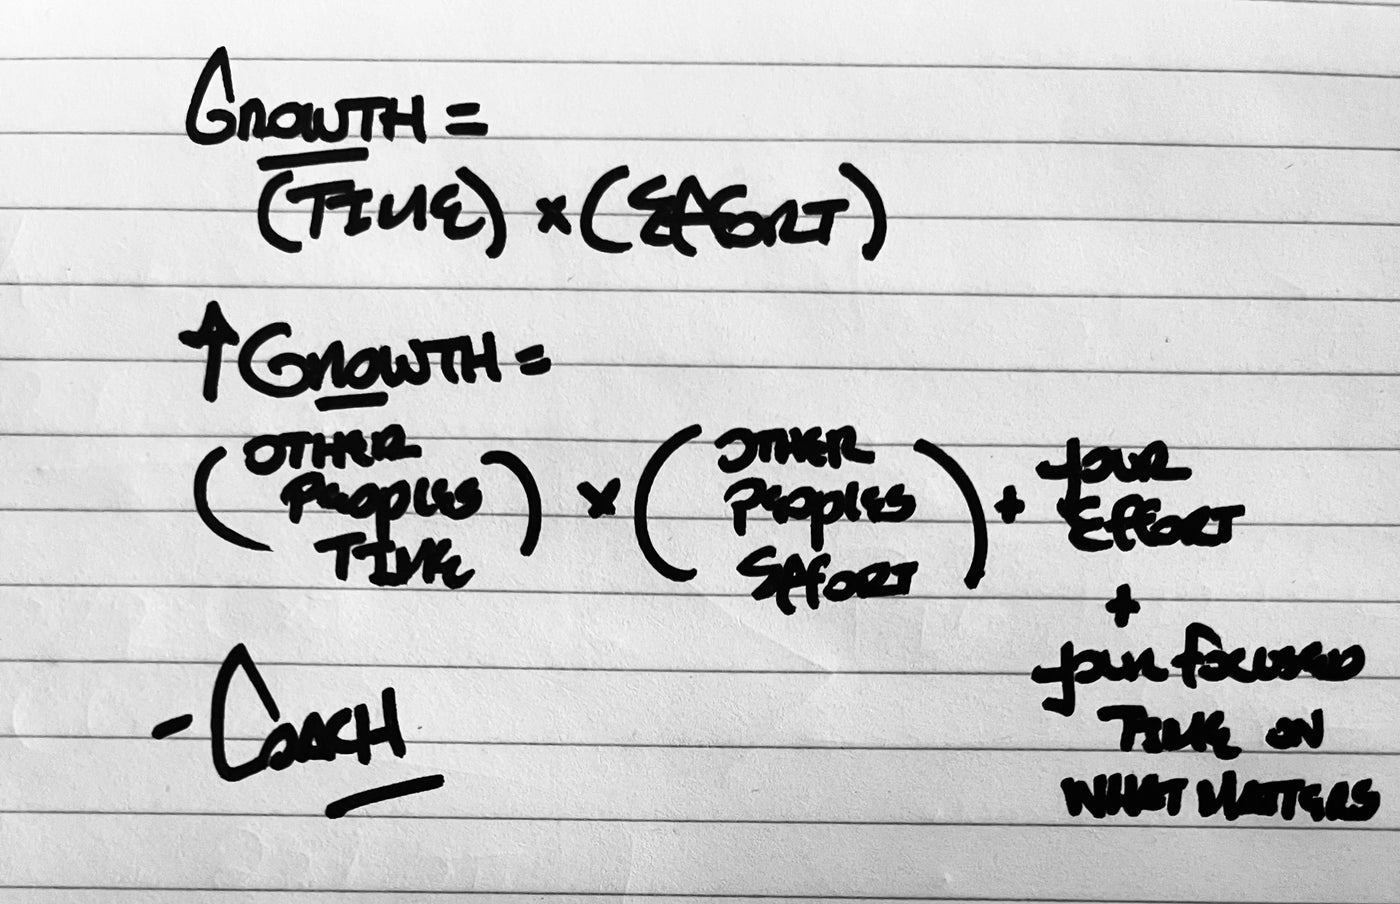 GROWTH =
(TIME) x (EFFORT)
↑ GROWTH =
( OTHER
PEOPLES
TIME )
x
( OTHER
PEOPLES
EFFORT )
+ your
EFFORT
+
your focused
TIME ON
WHAT MATTERS
- COACH